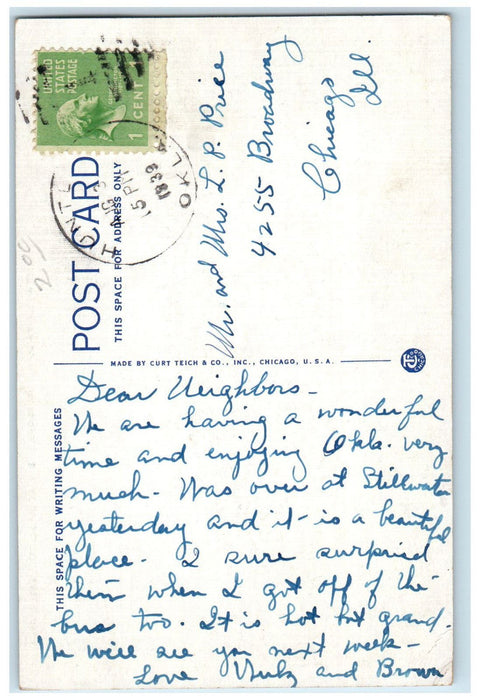 UNITED
STATES
POSTAGE
1 CENT 1
OKLA.
5 PM
1939
POST CARD
THIS SPACE FOR ADDRESS ONLY
209
Mr. and Mrs. L. P. Price
4255 Broadway
Chicago
Ill.
MADE BY CURT TEICH & CO., INC., CHICAGO, U. S. A.
THIS SPACE FOR WRITING MESSAGES
Dear Neighbors -
We are having a wonderful
time and enjoying Okla. very
much. Was over at Stillwater
yesterday and it is a beautiful
place. I sure surprised
them when I got off of the
bus too. It is hot but grand.
We will see you next week -
Love and Brown